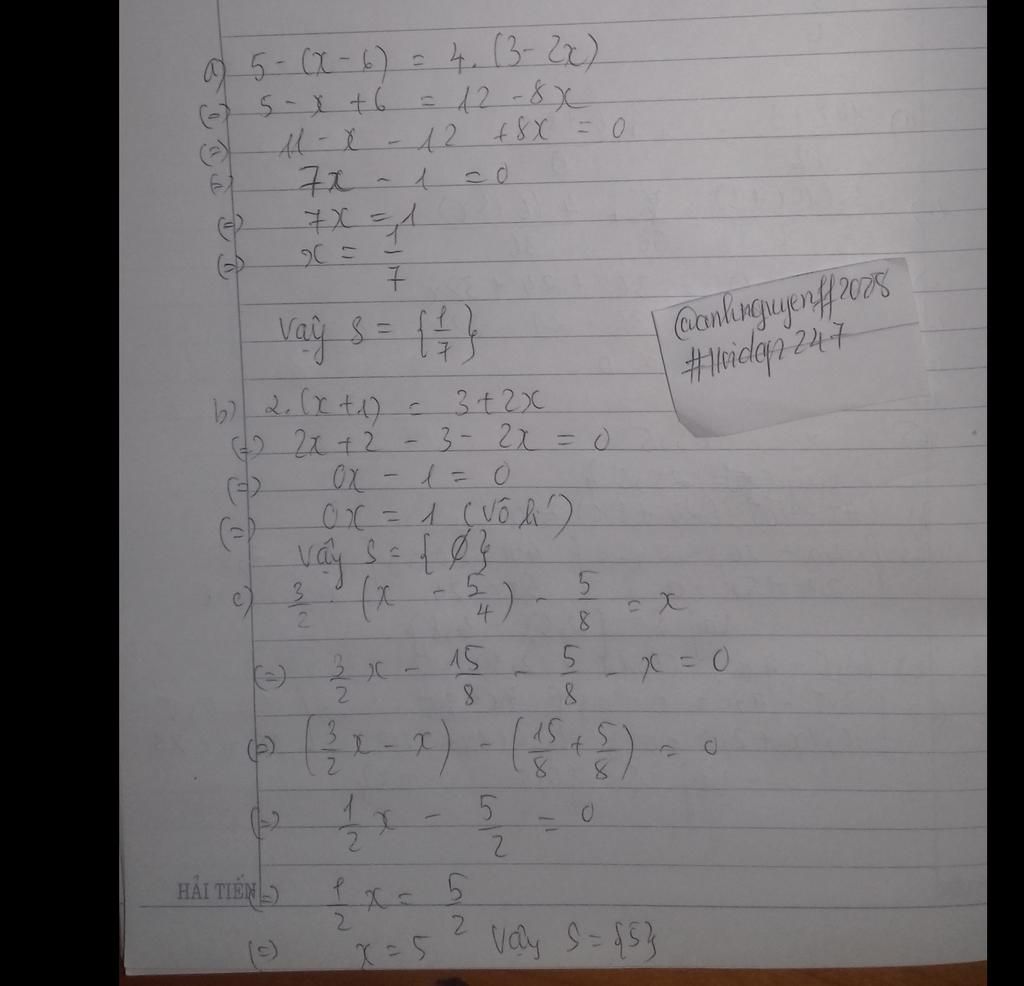 a) 5 - (x - 6) = 4. (3 - 2x)
(=) 5 - x + 6 = 12 - 8x
(=) 11 - x - 12 + 8x = 0
(=) 7x - 1 = 0
(=) 7x = 1
(=) x = 1/7
Vậy S = {1/7}
@anhnguyenff2028
#Hoidap247
b) 2. (x + 1) = 3 + 2x
(=) 2x + 2 - 3 - 2x = 0
(=) 0x - 1 = 0
(=) 0x = 1 (vô lí)
Vậy S = {Ø}
c) 3/2 . (x - 5/4) - 5/8 = x
(=) 3/2 x - 15/8 - 5/8 - x = 0
(=) (3/2 x - x) - (15/8 + 5/8) = 0
(=) 1/2 x - 5/2 = 0
HẢI TIẾN (=) 1/2 x = 5/2
(=) x = 5 Vậy S = {5}